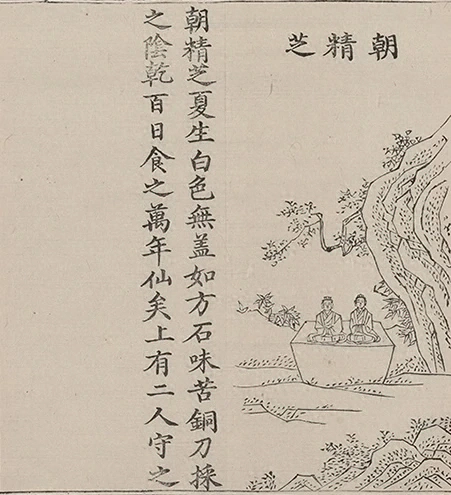 朝精芝
朝精芝夏生白色無盖如方石味苦銅刀採
之陰乾百日食之萬年仙矣上有二人守之